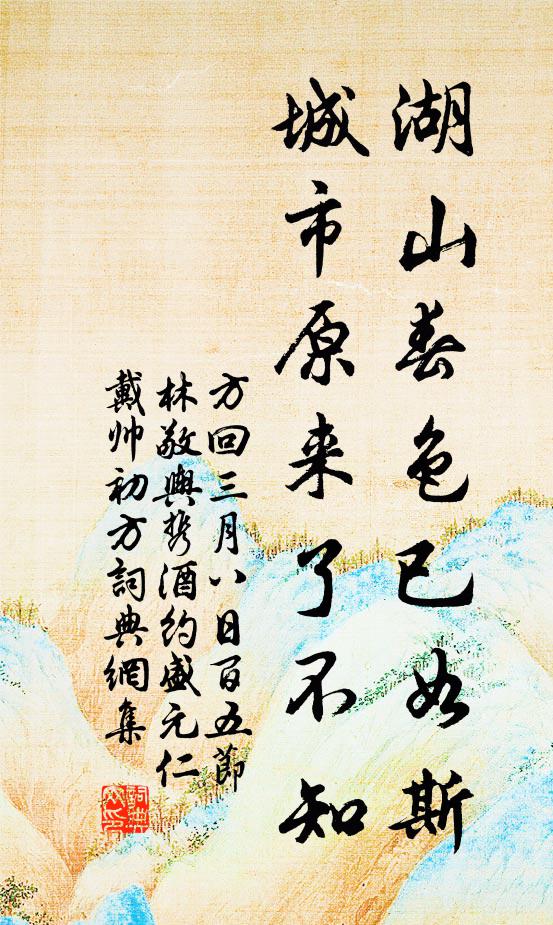 湖山春色已如斯
城市原来了不知
方回三月八日百五節
林敬輿携酒約盛元仁
戴帅初方詞典網集